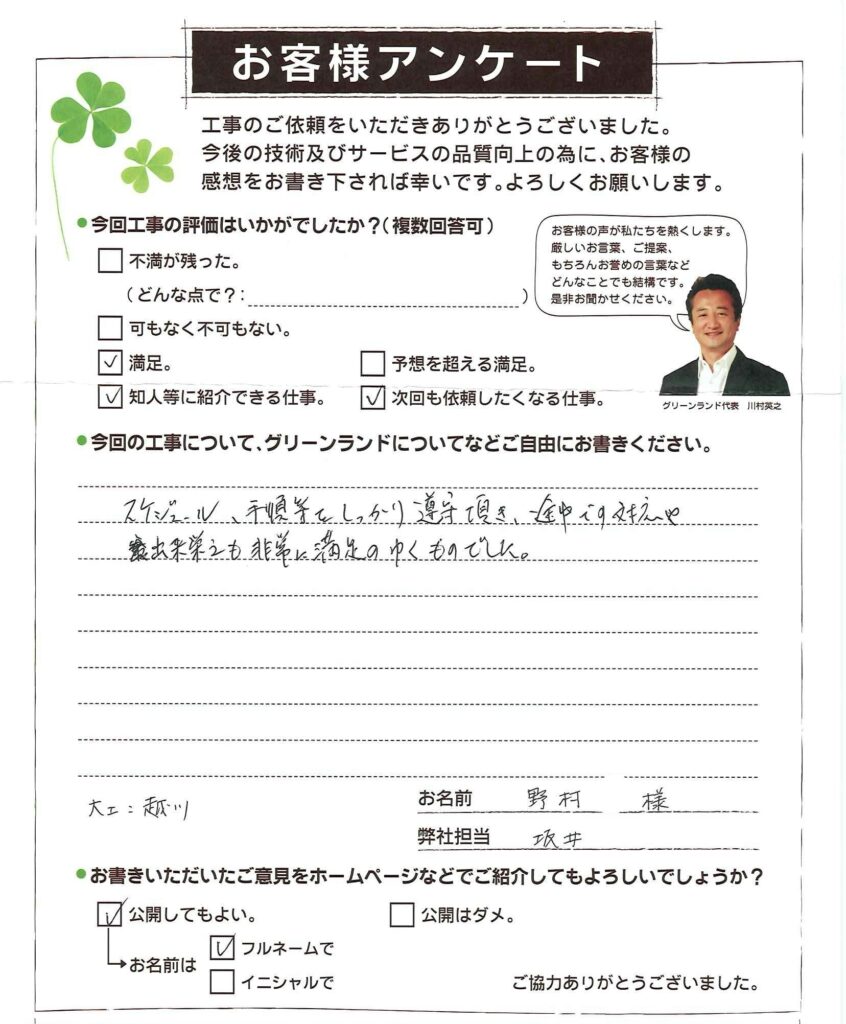 お客様アンケート
工事のご依頼をいただきありがとうございました。
今後の技術及びサービスの品質向上の為に、お客様の
感想をお書き下されば幸いです。よろしくお願いします。
今回工事の評価はいかがでしたか？（複数回答可）
お客様の声が私たちを熱くします。
厳しいお言葉、ご提案、
もちろんお誉めの言葉など
どんなことでも結構です。
是非お聞かせください。
不満が残った。
（どんな点で？：　）
可もなく不可もない。
満足。 予想を超える満足。
知人等に紹介できる仕事。 次回も依頼したくなる仕事。
グリーンランド代表　川村英之
今回の工事について、グリーンランドについてなどご自由にお書きください。
スケジュール、手順等をしっかり遵守頂き、途中での対応や
出来栄えも非常に満足のゆくものでした。
大工：越川
お名前 野村 様
弊社担当 坂井
お書きいただいたご意見をホームページなどでご紹介してもよろしいでしょうか？
公開してもよい。 公開はダメ。
お名前は フルネームで
イニシャルで
ご協力ありがとうございました。